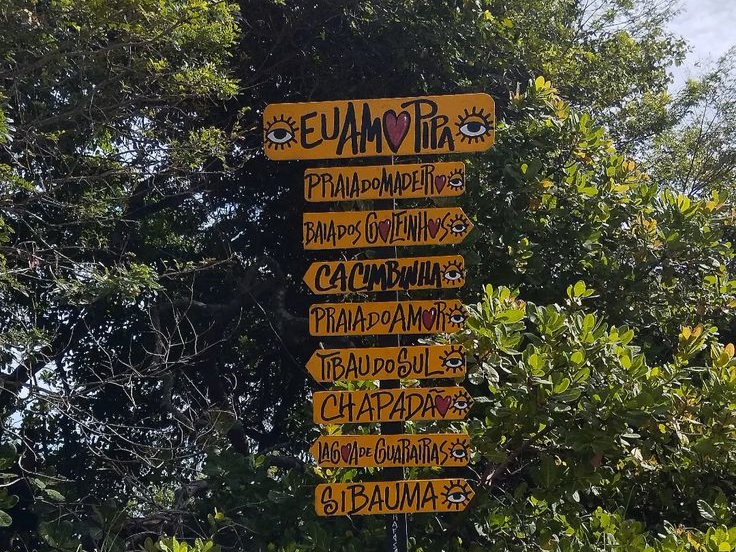 EU AMO PIPA
PRAIA DO MADEIRO
BAIA DOS GOLFINHOS
CACIMBINHA
PRAIA DO AMOR
TIBAU DO SUL
CHAPADÃO
LAGOA DE GUARAIRAS
SIBAUMA